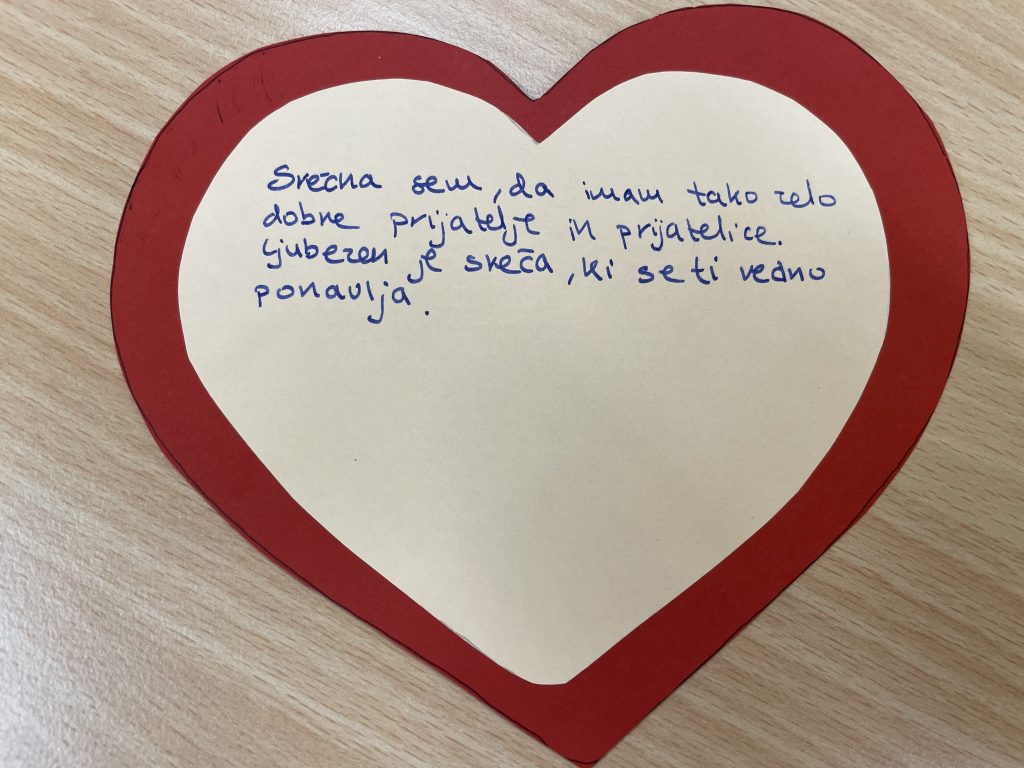 Srečna sem, da imam tako zelo
dobre prijatelje in prijatelice.
Ljubezen je sreča, ki se ti vedno
ponavlja.